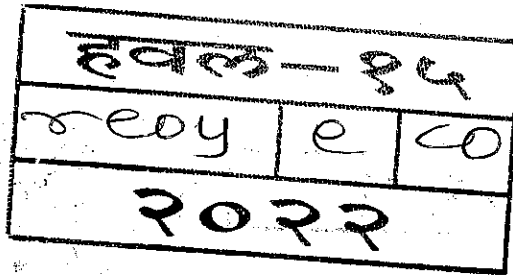 हवल-१५
२९०५ ९ ८०
२०२२